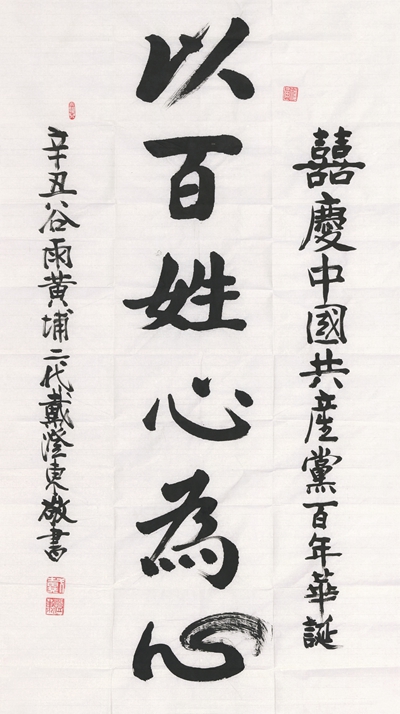 囍慶中國共産黨百年華誕
以百姓心為心
辛丑谷雨黄埔二代戴澄東敬書